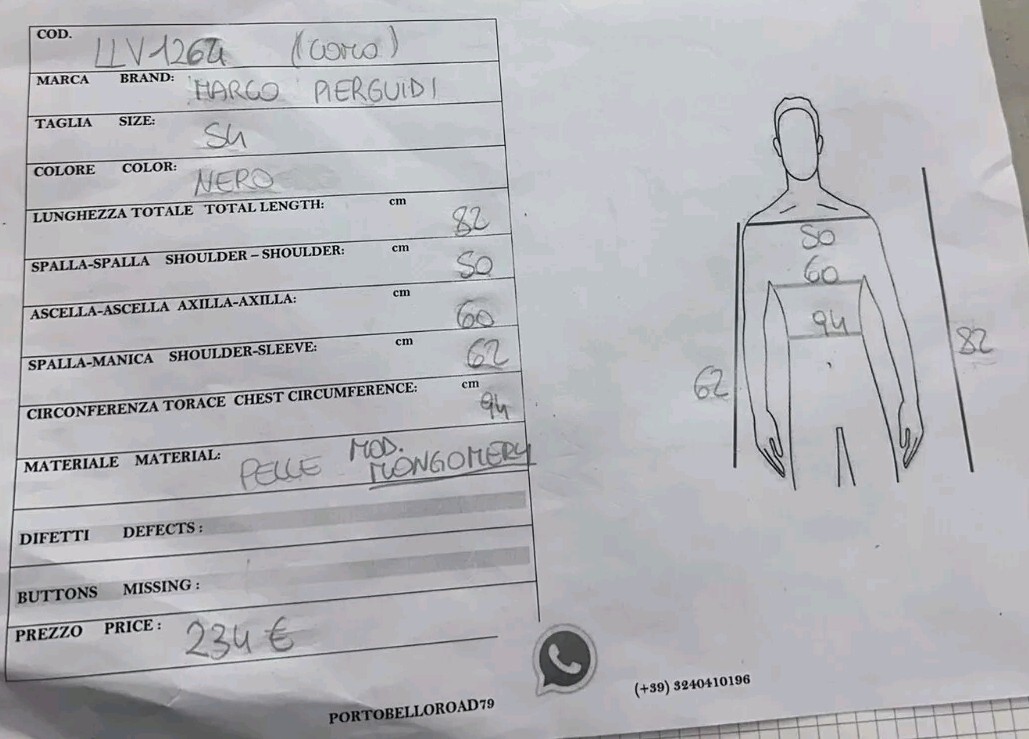 COD. LLV1264 (CORO)
MARCA BRAND: MARCO PIERGUIDI
TAGLIA SIZE: 54
COLORE COLOR: NERO
LUNGHEZZA TOTALE TOTAL LENGTH: cm 82
SPALLA-SPALLA SHOULDER – SHOULDER: cm 50
ASCELLA-ASCELLA AXILLA-AXILLA: cm 60
SPALLA-MANICA SHOULDER-SLEEVE: cm 62
CIRCONFERENZA TORACE CHEST CIRCUMFERENCE: cm 94
MATERIALE MATERIAL: PELLE MOD. MONGOMERY
DIFETTI DEFECTS :
BUTTONS MISSING :
PREZZO PRICE : 234 €
PORTOBELLOROAD79
50
60
94
62
82
(+39) 3240410196